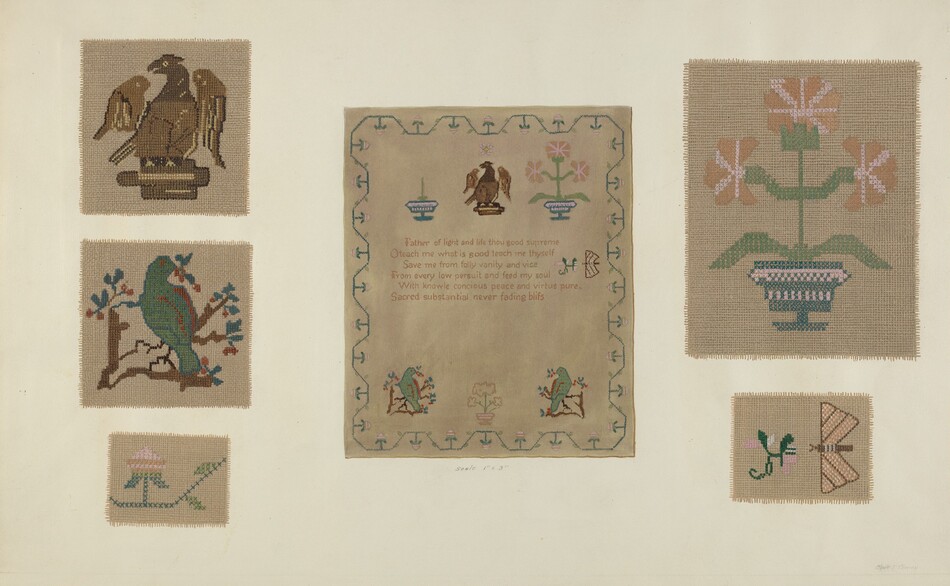 Father of light and life thou good supreme
O teach me what is good teach me thyself
Save me from folly vanity and vice
From every low persuit and feed my soul
With knowle concious peace and virtue pure,
Sacred substantial never fading blifs
scale 1" = 3"